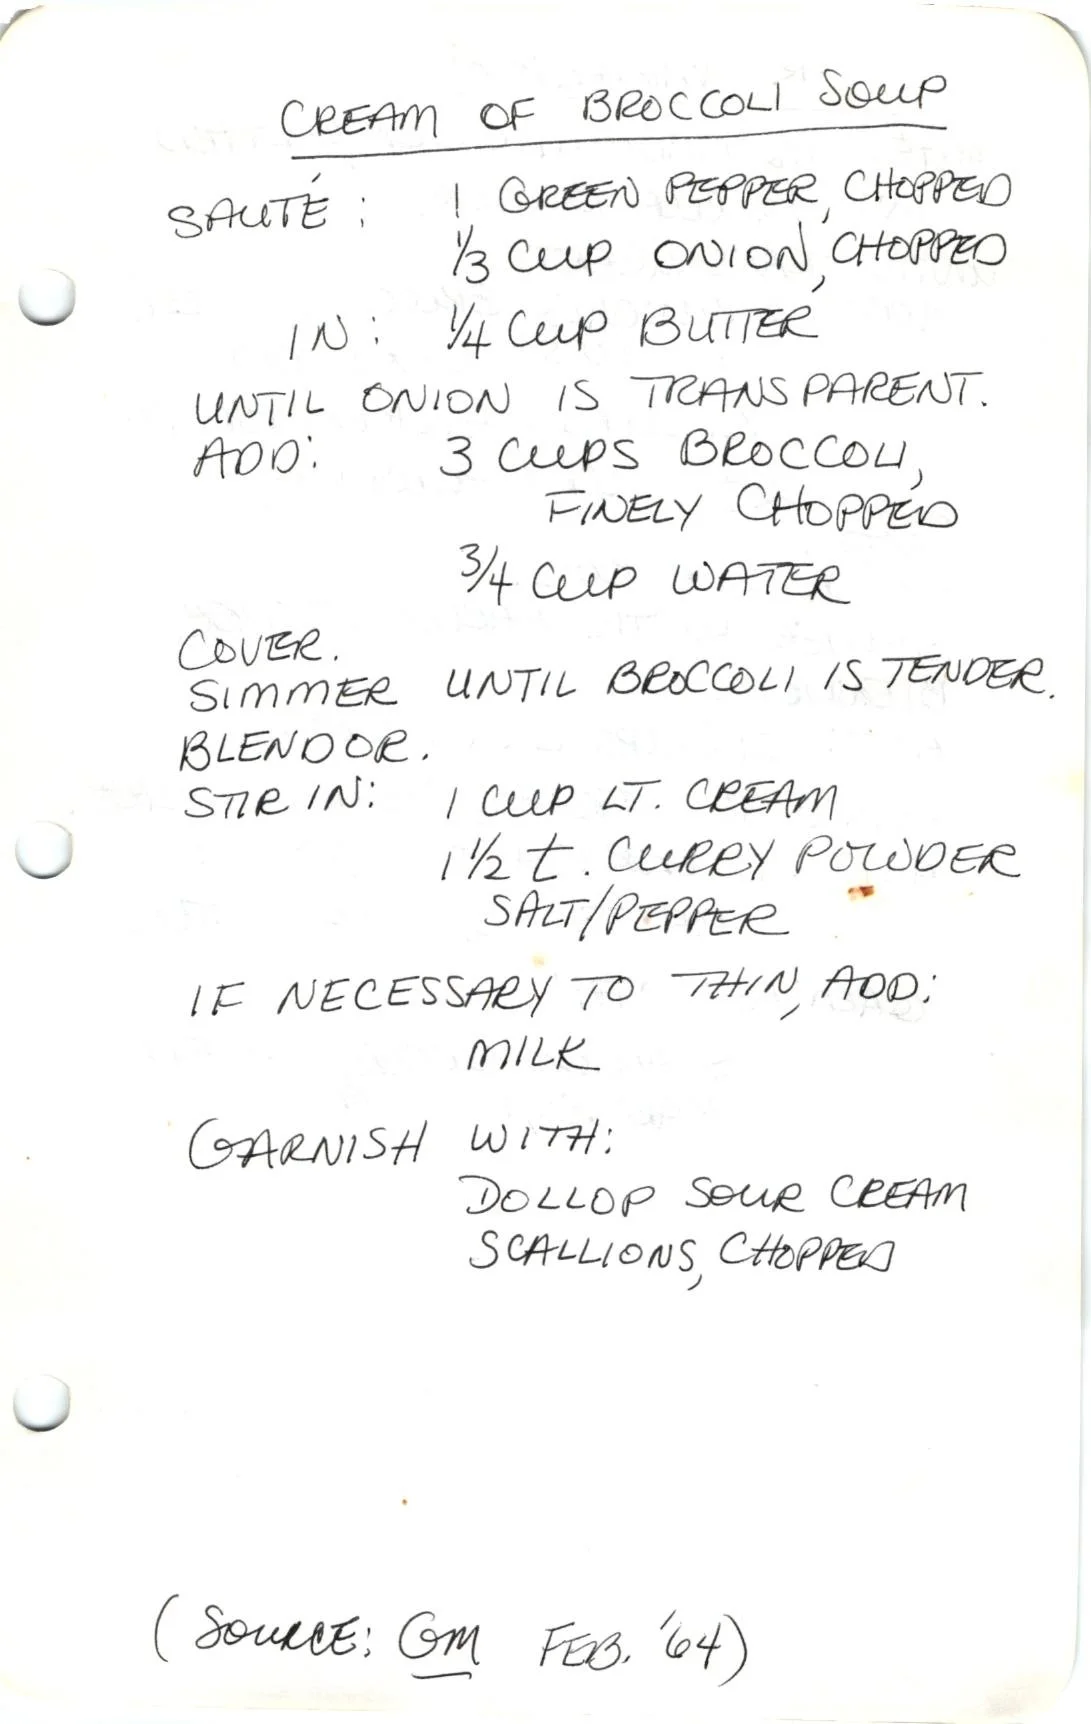 CREAM OF BROCCOLI SOUP
SAUTÉ: 1 GREEN PEPPER, CHOPPED
1/3 CUP ONION, CHOPPED
IN: 1/4 CUP BUTTER
UNTIL ONION IS TRANSPARENT.
ADD: 3 CUPS BROCCOLI,
FINELY CHOPPED
3/4 CUP WATER
COVER.
SIMMER UNTIL BROCCOLI IS TENDER.
BLENDOR.
STIR IN: 1 CUP LT. CREAM
1 1/2 t. CURRY POWDER
SALT/PEPPER
IF NECESSARY TO THIN, ADD:
MILK
GARNISH WITH:
DOLLOP SOUR CREAM
SCALLIONS, CHOPPED
(SOURCE: GM FEB. '64)